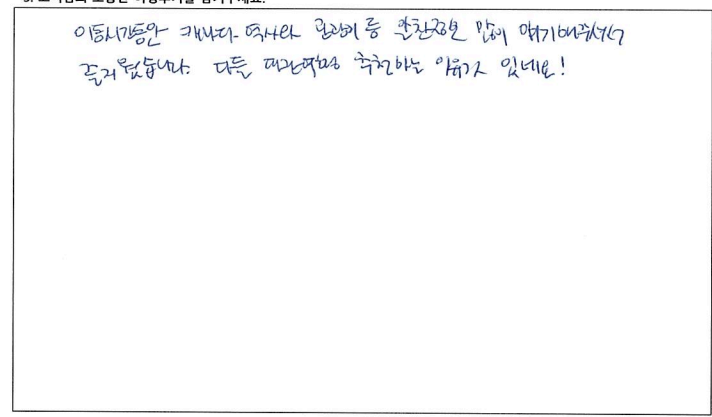 이동시간동안 캐나다 역사와 관광지 등 알찬정보 많이 얘기해주셔서
즐거웠습니다. 다들 대관여행 추천하는 이유가 있네요!